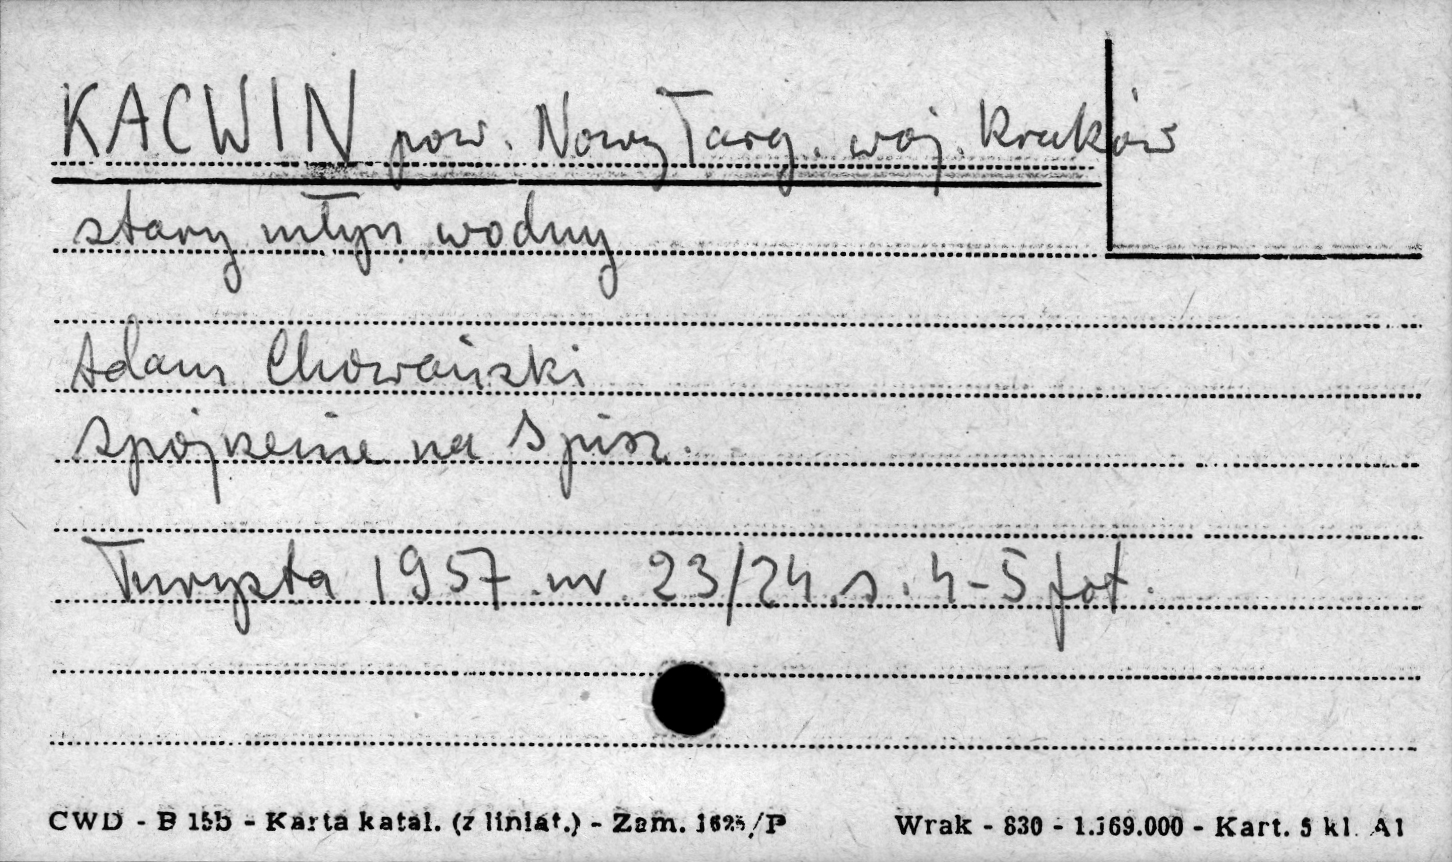 KACWIN pow. Nowy Targ. woj. Kraków
stary młyn wodny
Adam Chowański
Spojrzenie na Spisz.
Turysta 1957 nr. 23/24 s. 4-5 fot.
CWD - B 15b - Karta katal. (z liniat.) - Zam. 1625/P
Wrak - 830 - 1.169.000 - Kart. 5 kl. A1